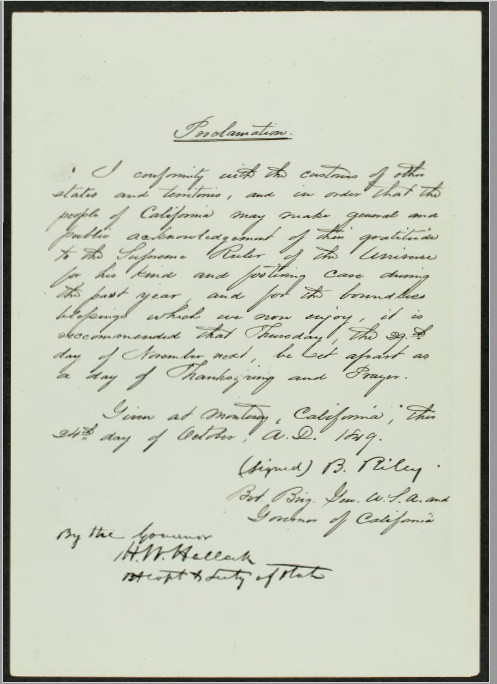 Proclamation.
I conformity with the customs of other
states and territories, and in order that the
people of California may make general and
public acknowledgement of their gratitude
to the Supreme Ruler of the Universe
for his kind and fostering care during
the past year, and for the boundless
blessings which we now enjoy, it is
reccommended that Thursday, the 29th
day of November next, be set apart as
a day of Thanksgiving and Prayer.
Given at Monterey, California, this
24th day of October, A.D. 1849.
(signed) B. Riley.
Bvt Brig. Gen. U.S.A. and
Governor of California
By the Governor
H.W. Halleck
Bt Capt & Secty of State